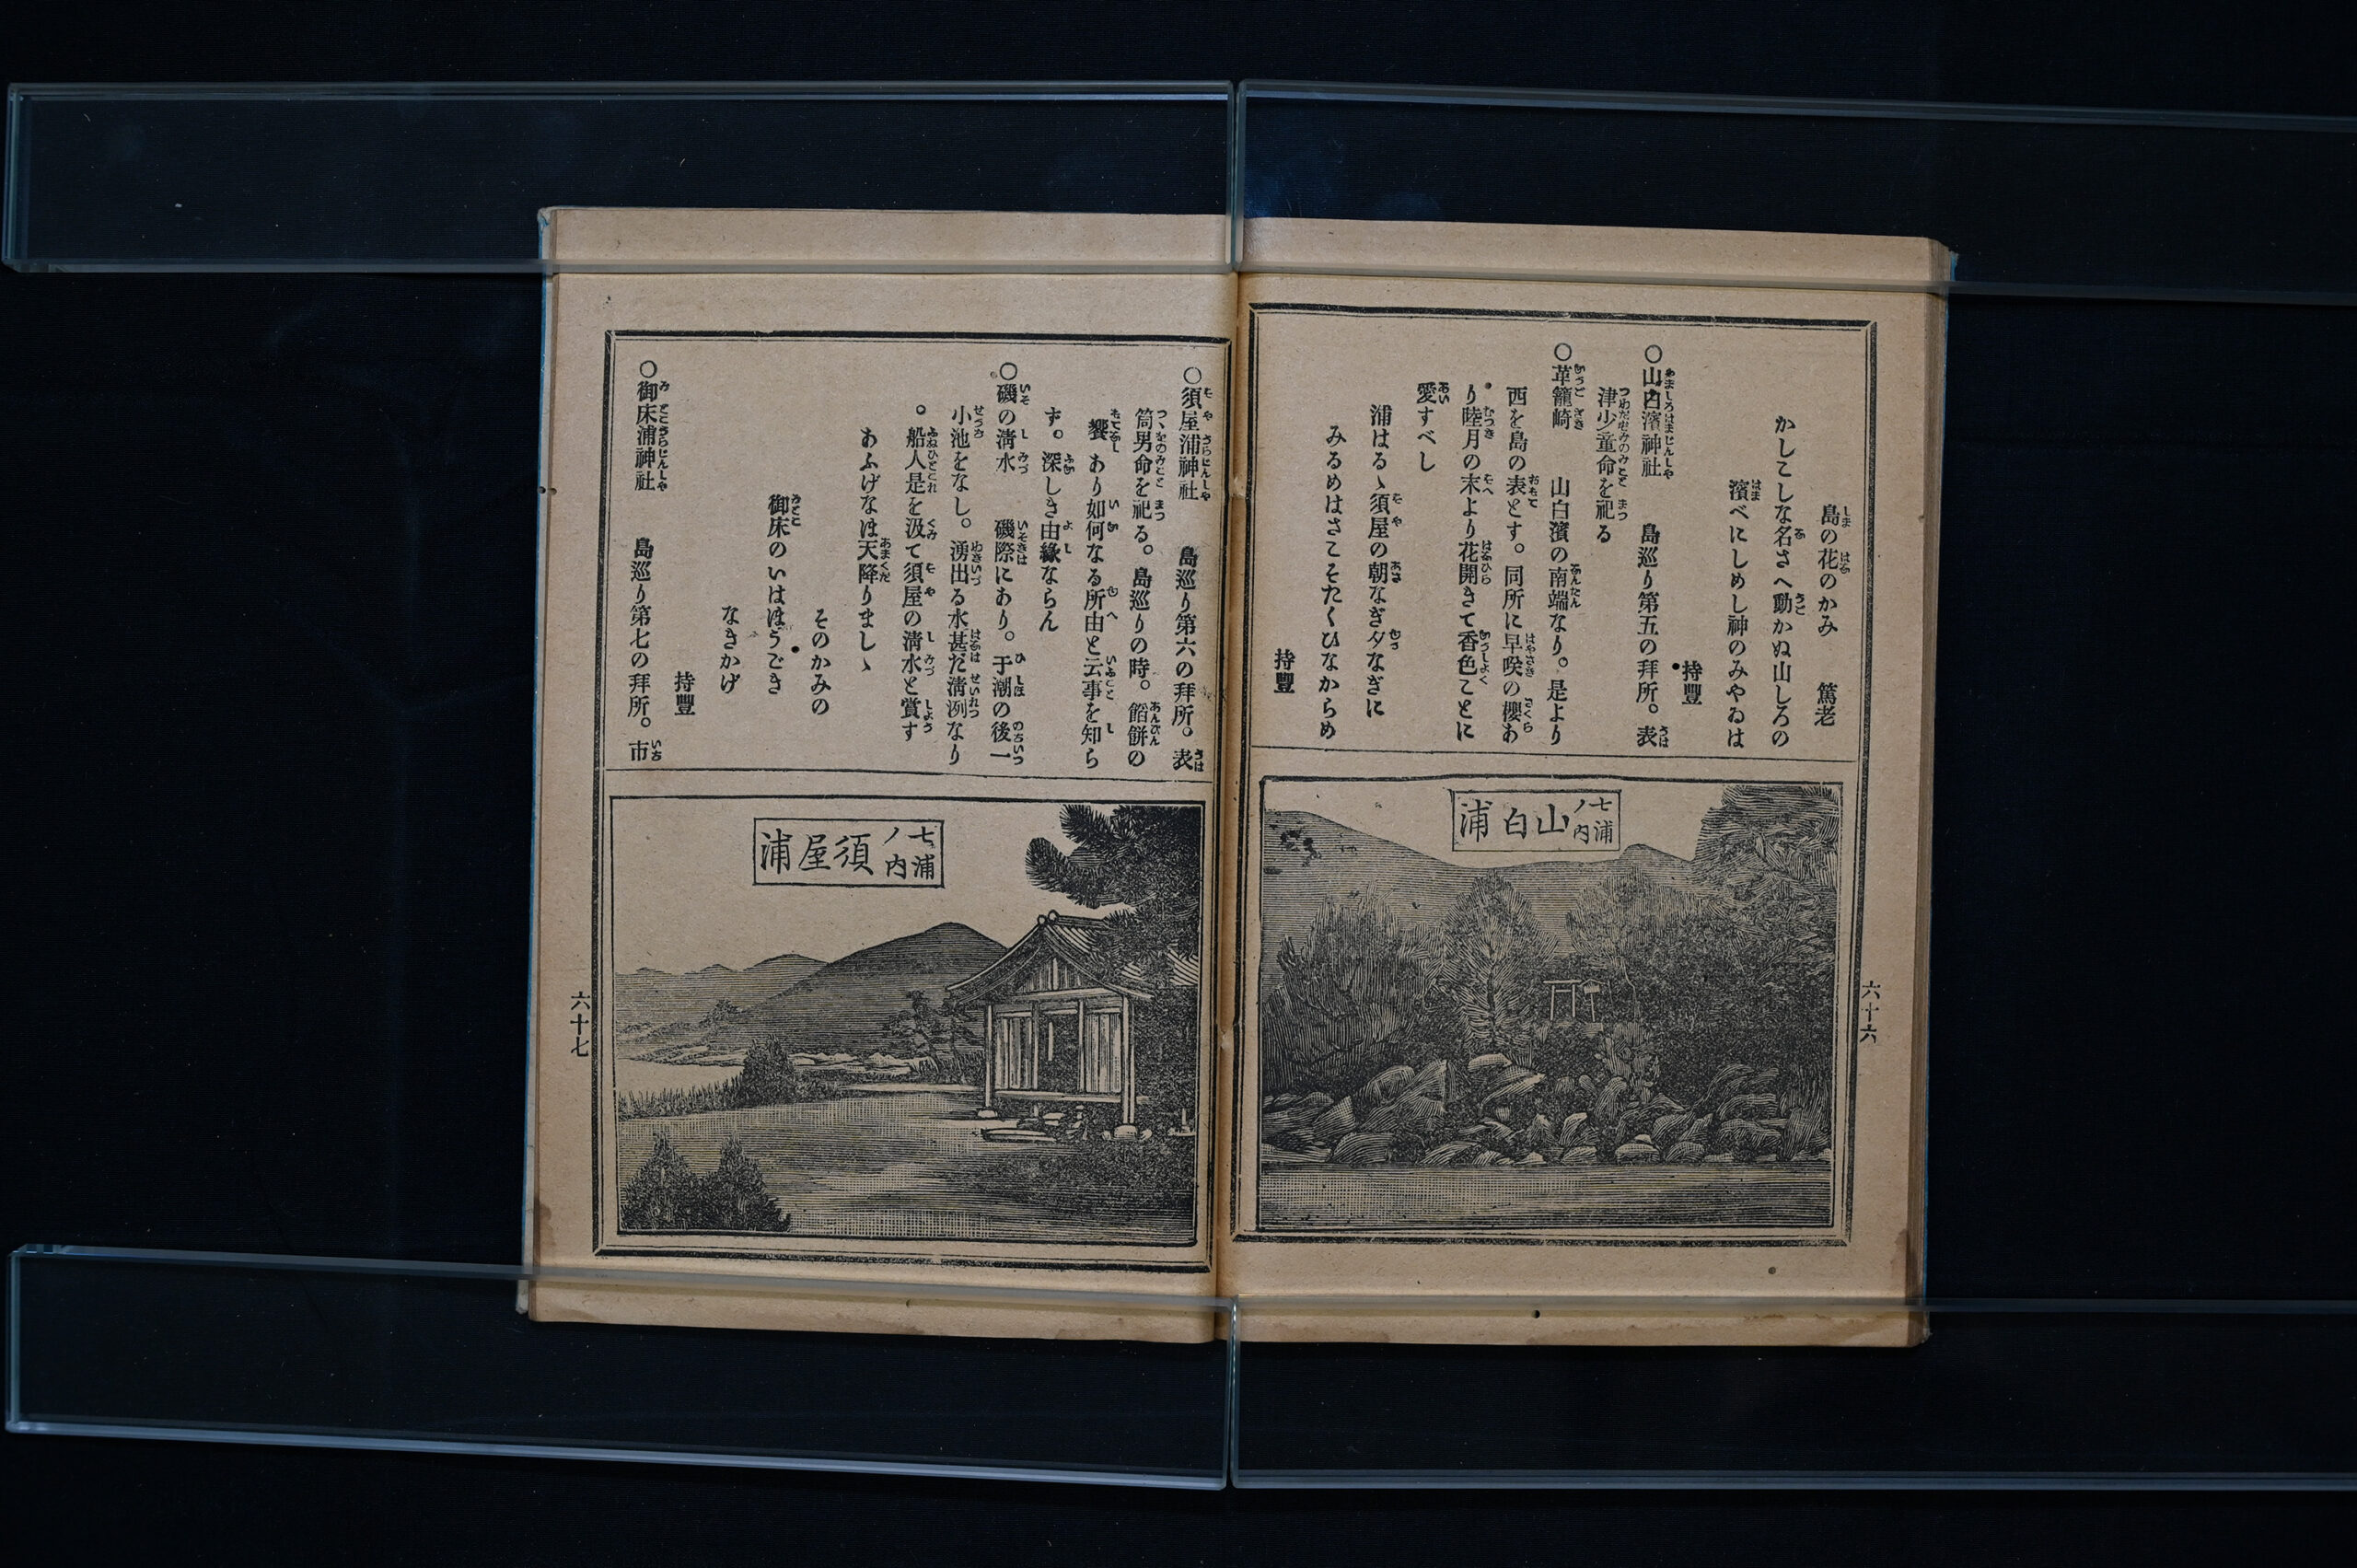 島の花のかみ　篤老
かしこしな名さへ動かぬ山しろの
濱べにしめし神のみやゐは
持豐
○山白濱神社　島巡り第五の拜所。表
津少童命を祀る
○革籠崎　山白濱の南端なり。是より
西を島の表とす。同所に早咲の櫻あ
り陸月の末より花開きて香色ことに
愛すべし
浦はるゝ須屋の朝なぎ夕なぎに
みるめはさこそたくひなからめ
持豐
七浦ノ内
山白浦
六十六
○須屋浦神社　島巡り第六の拜所。表
筒男命を祀る。島巡りの時。餡餅の
饗あり如何なる所由と云事を知ら
ず。深しき由緣ならん
○磯の淸水　磯際にあり。于潮の後一
小池をなし。湧出る水甚だ淸洌なり
。船人是を汲て須屋の淸水と賞す
あふげなほ天降りましゝ
そのかみの
御床のいはほうごき
なきかげ
持豐
○御床浦神社　島巡り第七の拜所。市
七浦ノ内
須屋浦
六十七